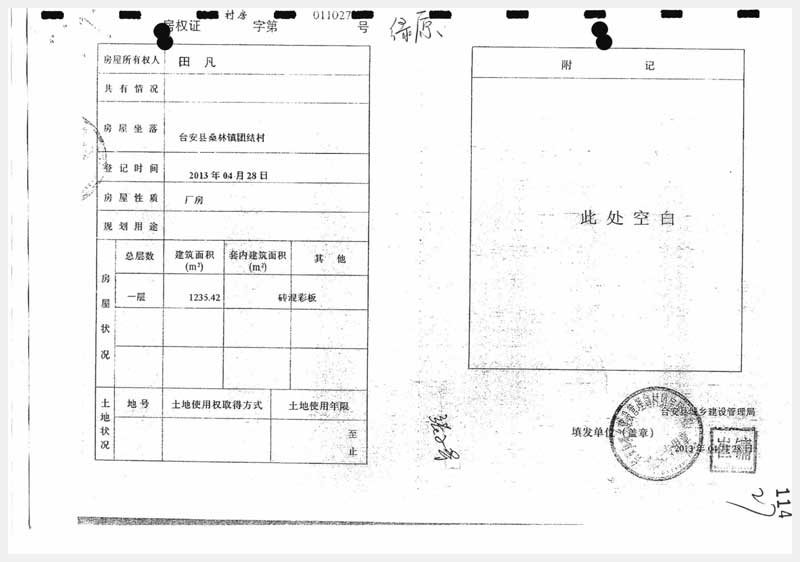 村房
房权证 字第 011027 号
绿原
房屋所有权人 田 凡
共有情况
房屋坐落 台安县桑林镇团结村
登记时间 2013 年 04 月 28 日
房屋性质 厂房
规划用途
房屋状况
总层数 建筑面积(m²) 套内建筑面积(m²) 其 他
一层 1235.42 砖混彩板
土地状况
地号 土地使用权取得方式 土地使用年限
至
止
附 记
此处空白
台安县城乡建设管理局
填发单位(盖章)
2013 年 04 月 28 日
114
27